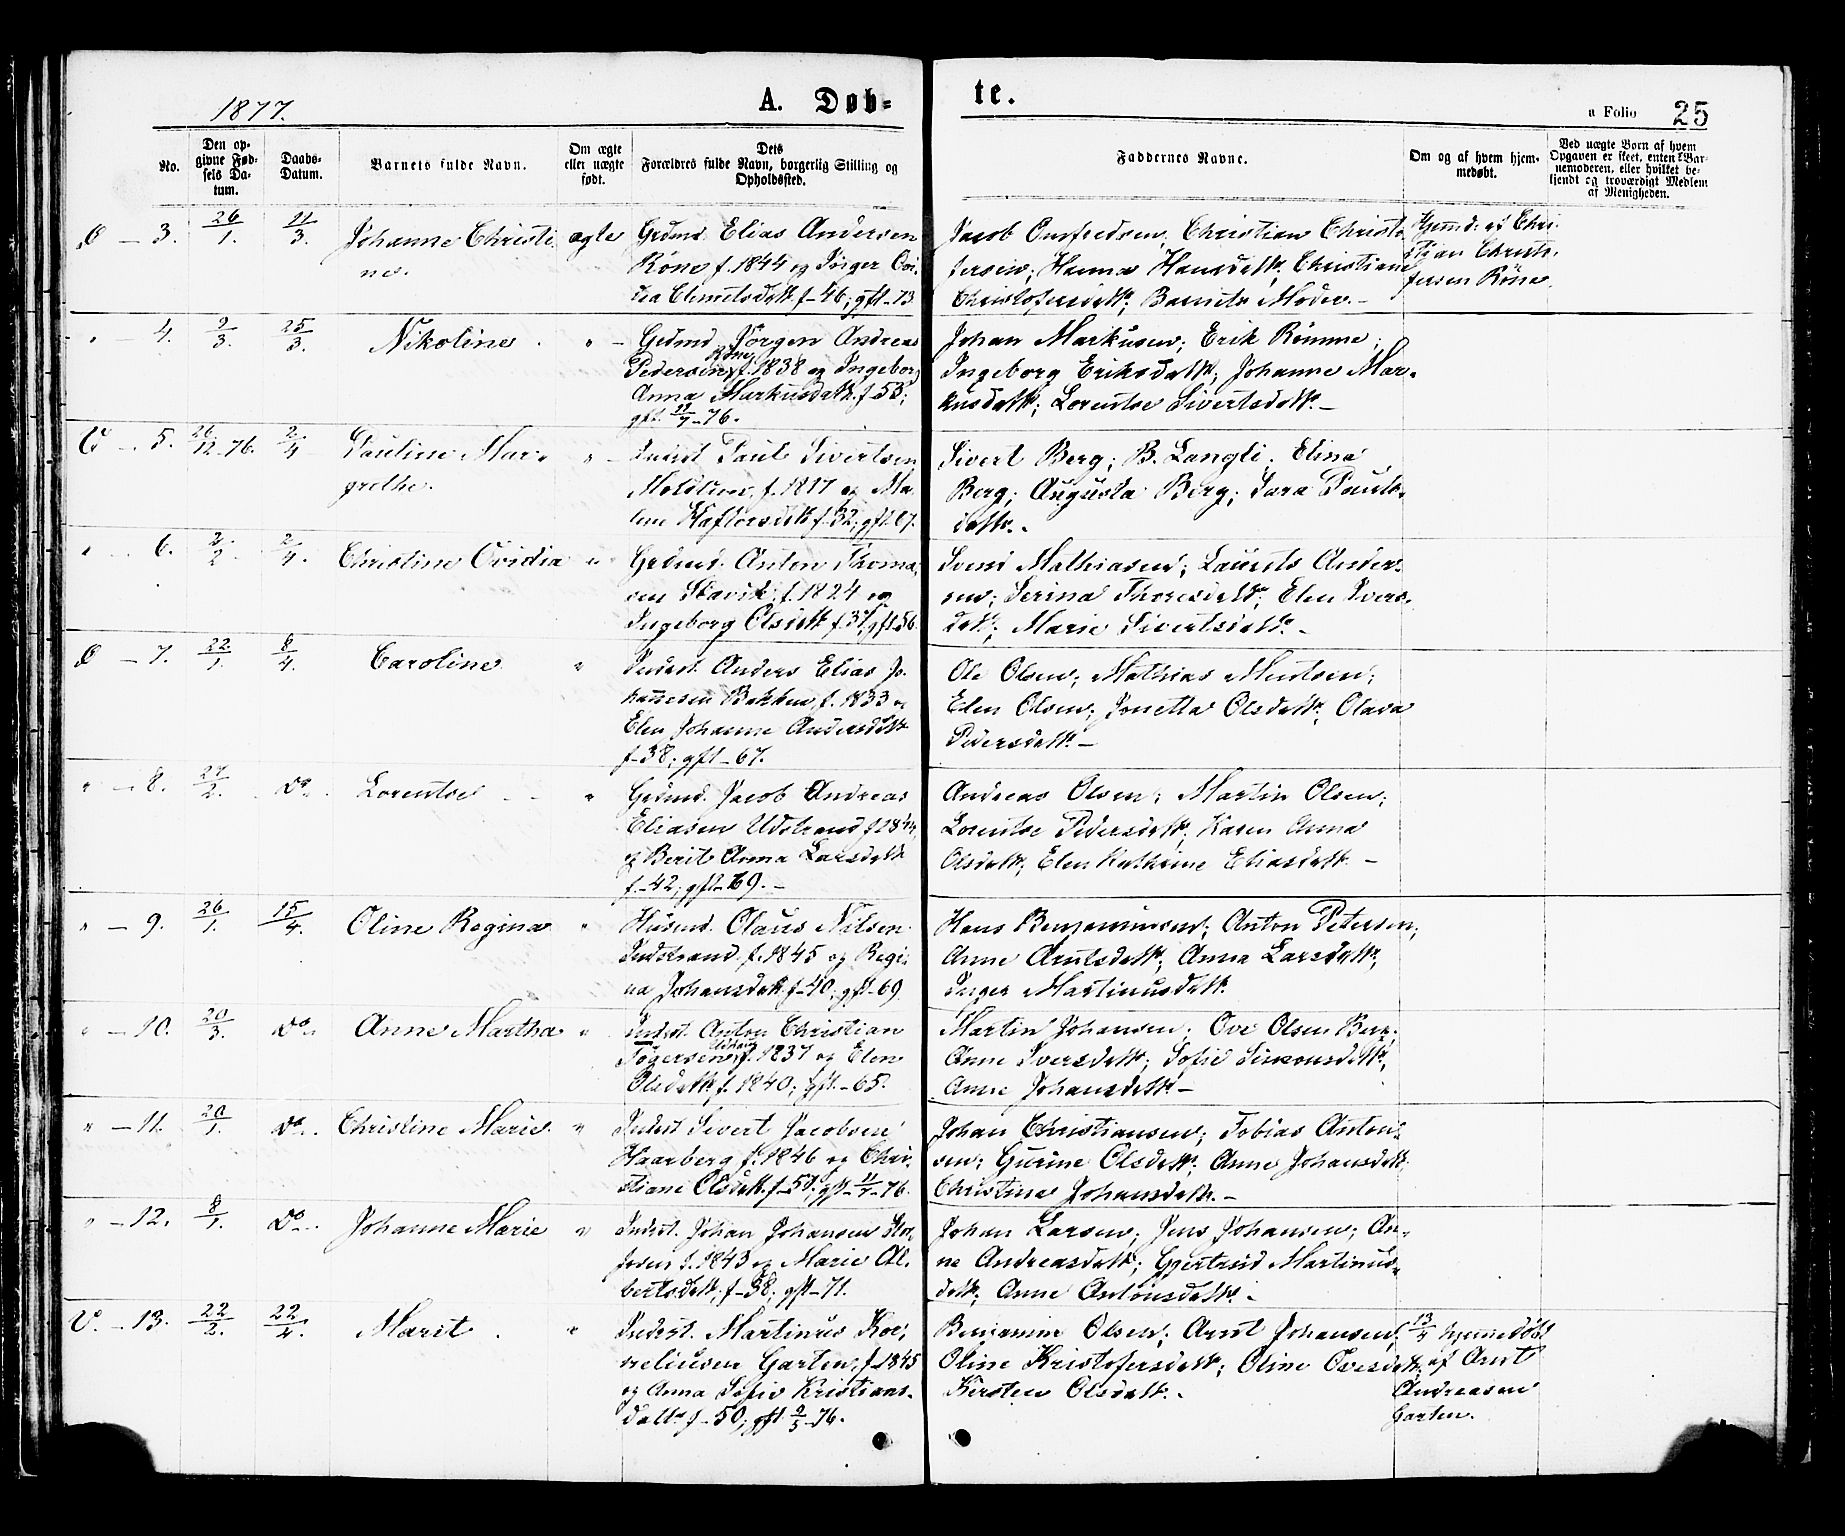 1877.
A. Døb-
te.
a Folio 25
No.
Den op-
givne Fød-
sels Da-
tum.
Daabs-
Datum.
Barnets fulde Navn.
Om ægte
eller uægte
født.
Dets
Forældres fulde Navn, borgerlig Stilling og
Opholdssted.
Faddernes Navne.
Om og af hvem hjem-
medøbt.
Ved uægte Børn af hvem
Opgaven er skeet, enten Bar-
nemoderen, eller hvilket be-
kjendt og troværdigt Medlem
af Menigheden.
3. 26/1. 11/3. Johanne Christi
ne.
ægte
Grdmd. Elias Andersen
Röne f. 1844 og Inger
f - 46; gft - 73
Jacob Christian Christo
fersen; Hanna Hansdatt; Christiane
Christofersdatt; Barnets Moder. -
Hjemd. af Chri-
stian Christo-
fersen Röne.
" - 4. 9/3. 25/3. Nikoline " -
Grdmd Jörgen Andreas
Pedersen Röne f. 1838 og Ingeborg
Anna Markusdatt. f - 53;
gft. 76.
Johan Markusen; Erik Römme;
Ingeborg Eriksdatt; Johanne Mar-
kusdatt; Lorentse Sivertsdatt. -
5. 26/12 - 76. 2/4 Pauline Mar-
grethe.
" -
Inderst Paul Sivertsen
f. 1817 og Ma
lene Haftorsdatt f. 32; gft. 67.
Sivert Berg; B. Langli; Elina
Berg; Augusta Berg; Sara Pauls-
datt. -
" - 6. 2/2. 2/4. Christine Ovidia "
Grdmd. Anton Thoma-
sen f. 1824 og
Ingeborg Olsdatt f. 37; gft. 56.
Svend Mathiasen; Laurits Ander-
sen; Serina Thoresdatt; Elen Ivers-
datt; Marie Sivertsdatt. -
- 7. 22/1. 8/4. Caroline "
Inderst. Anders Elias Jo-
hannesen Bakken, f. 1833 og
Elen Johanne Andersdatt
f - 38; gft - 67.
Ole Olsen; Mathias
Elen Olsen; Jonetta Olsdatt; Olava
Pedersdatt. -
" - 8. 27/2. Do. Lorentse "
Grdmd. Jacob Andreas
Eliasen Udstrand f. 1844
og Berit Anna Larsdatt
f - 42; gft - 69. -
Andreas Olsen; Martin Olsen;
Lorentse Pedersdatt; Karen Anna
Olsdatt; Elen Kathrine Eliasdatt. -
" - 9. 26/1. 15/4. Oline Regina "
Husmd. Olaus Nilsen
Indstrand f. 1845 og Regi-
na Johansdatt f - 40; gft - 69.
Hans Benjaminsen; Anton Petersen;
Anne Arntsdatt; Anna Larsdatt;
Inger Martinusdatt.
" - 10. 20/3. Do. Anne Martha "
Inderst. Anton Christian
f. 1837 og Elen
Olsdatt, f. 1840; gft. - 65.
Martin Johansen; Ove Olsen Berg;
Anne Iversdatt; Sofie Simonsdatt;
Anne Johansdatt. -
" - 11. 20/1. Do. Christine Marie "
Inderst Sivert Jacobsen
Haarberg f. 1846 og Chri-
stiane Olsdatt. f - 50; gft - 76.
Johan Christiansen; Tobias Anton-
sen; Gurine Olsdatt; Anne Johansdatt;
Christina Johansdatt. -
" - 12. 8/1. Do. Johanne Marie "
Inderst. Johan Johansen
f. 1843 og Marie Al-
bertsdatt; f - 38; gft - 71.
Johan Larsen; Jens Johansen; An-
ne Andreasdatt; Gjertrud Martinus-
datt; Anne Antonsdatt. -
V. - 13. 22/2. 22/4. Marit "
Inderst. Martinus Kor-
neliusen Garten, f. 1845
og Anna Sofie Kristians-
datt. f - 50; gft. 9/5 - 76.
Benjamin Olsen; Arnt Johansen;
Oline Kristofersdatt; Oline Ovesdatt;
Kirsten Olsdatt. -
13/4 hjemmedøbt
af Arnt
Andreasen
Garten.